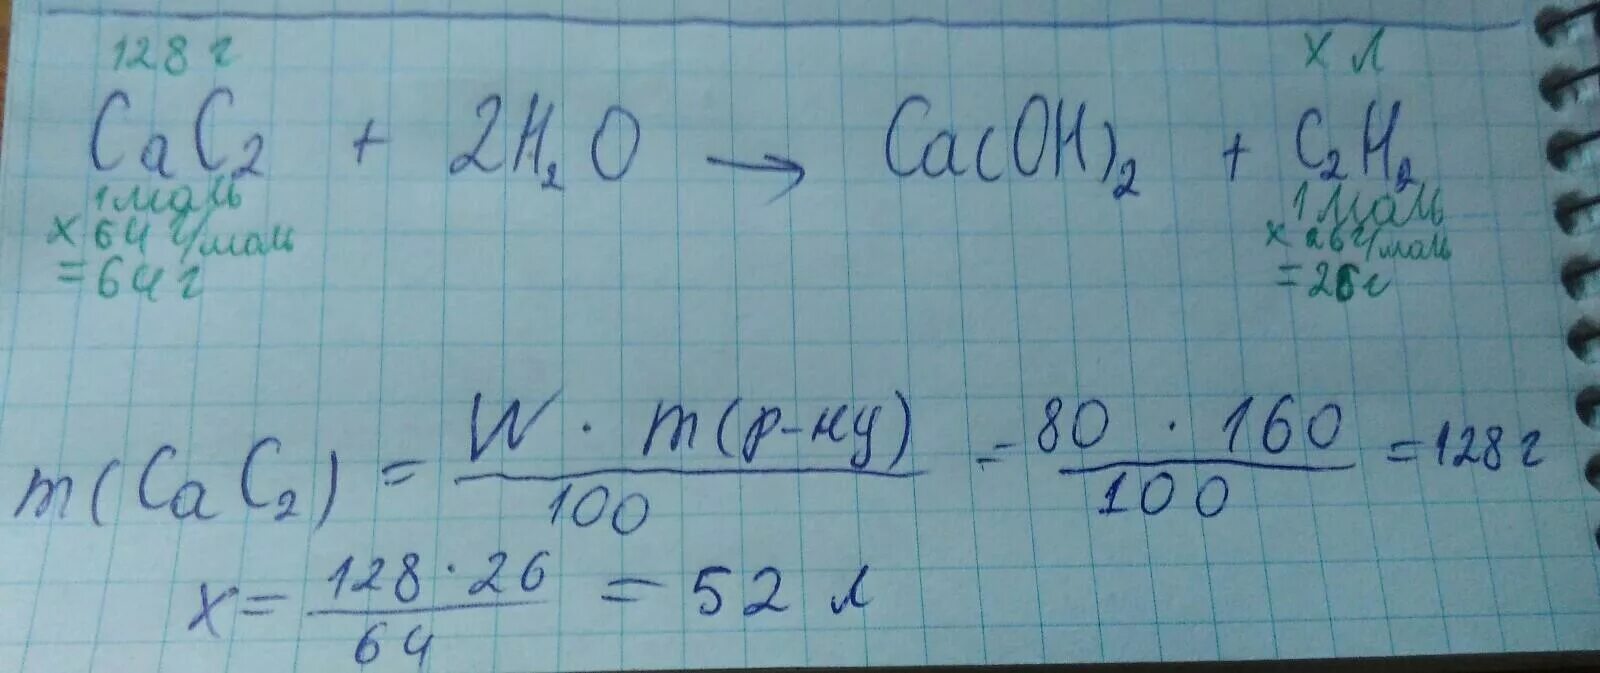 128 г x л
CaC₂ + 2H₂O → Ca(OH)₂ + C₂H₂
1 моль 1 моль
x 64 г/моль x 26 г/моль
= 64 г = 26 г
m(CaC₂) = W · m(р-ну) / 100 = 80 · 160 / 100 = 128 г
x = 128 · 26 / 64 = 52 л